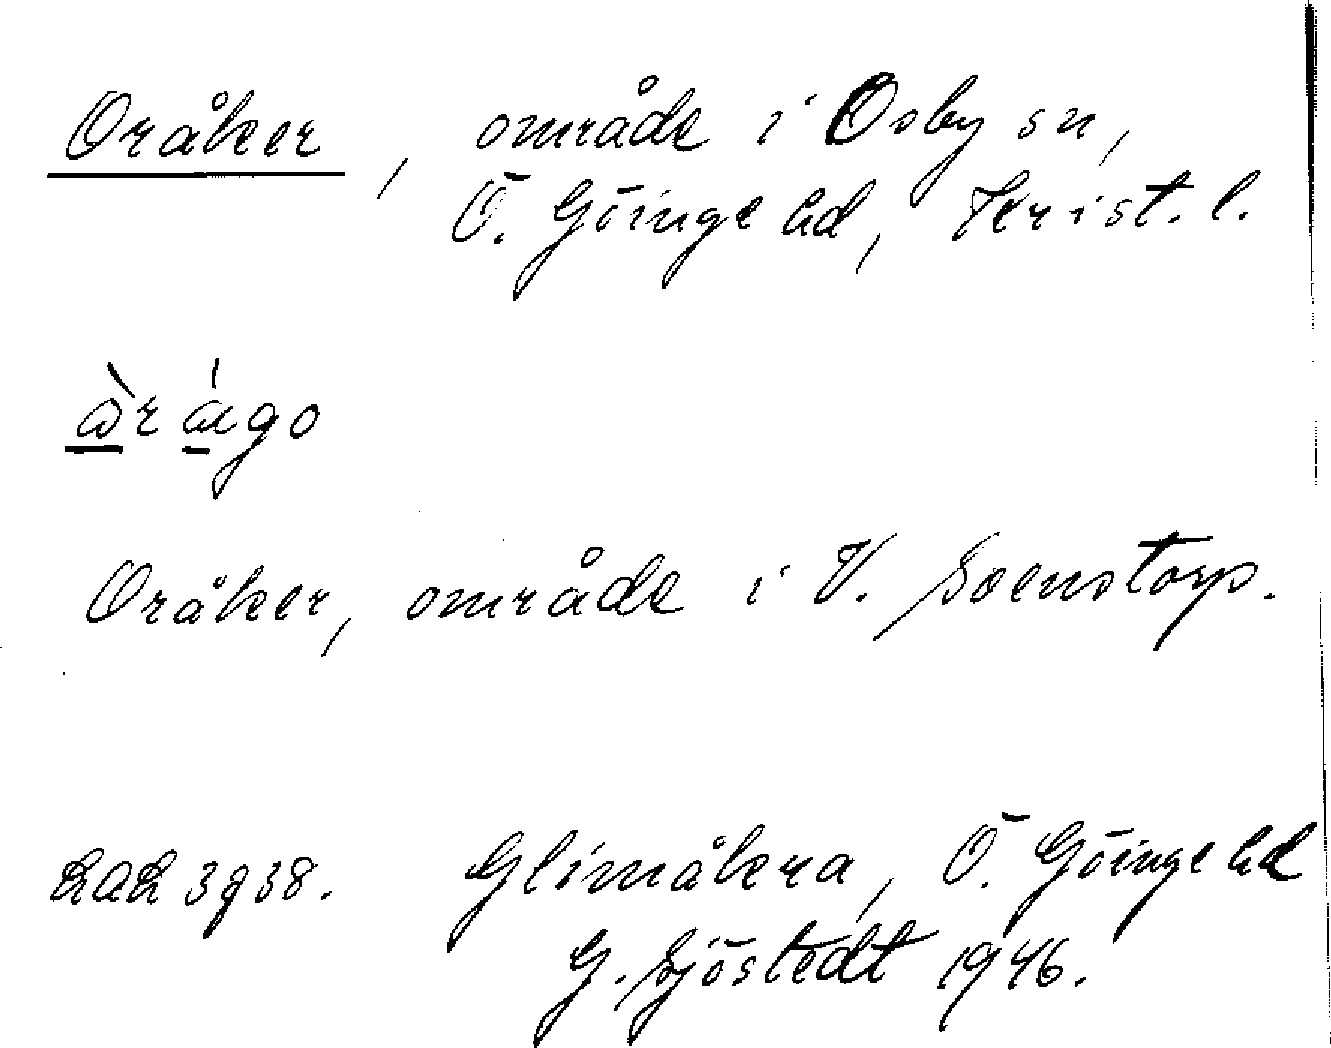 Oråker, område i Osby sn,
Ö. Göinge hd, Krist. l.
Oråker, område i V. Svenstorp.
LAL 3938. Glimåkra, Ö. Göinge hd
G. Sjöstedt 1946.